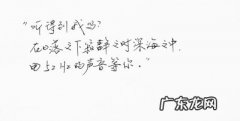 "听得到我吗?
在日落之下寂静之时深海之中,
由52Hz的声音等你."
广东龙网